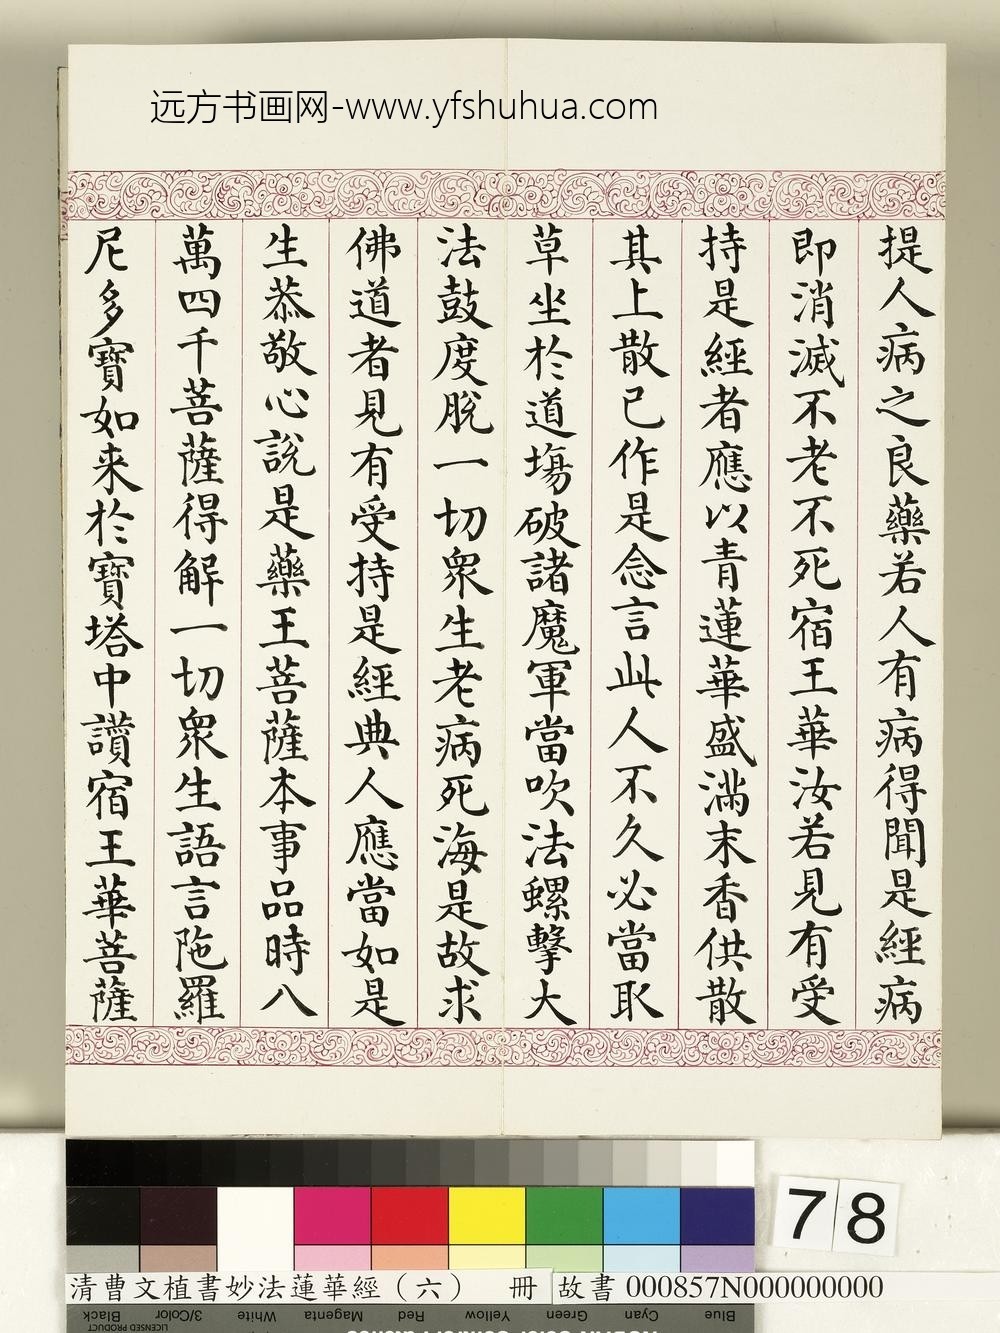 远方书画网-www.yfshuhua.com
提人病之良藥若人有病得聞是經病
即消滅不老不死宿王華汝若見有受
持是經者應以青蓮華盛滿末香供散
其上散已作是念言此人不久必當取
草坐於道場破諸魔軍當吹法螺擊大
法鼓度脫一切衆生老病死海是故求
佛道者見有受持是經典人應當如是
生恭敬心說是藥王菩薩本事品時八
萬四千菩薩得解一切衆生語言陁羅
尼多寶如来於寶塔中讚宿王華菩薩
78
清曹文植書妙法蓮華經(六) 冊 故書 000857N000000000
Blue Cyan Green Yellow Red Magenta White 3/Color Black
LICENSED PRODUCT